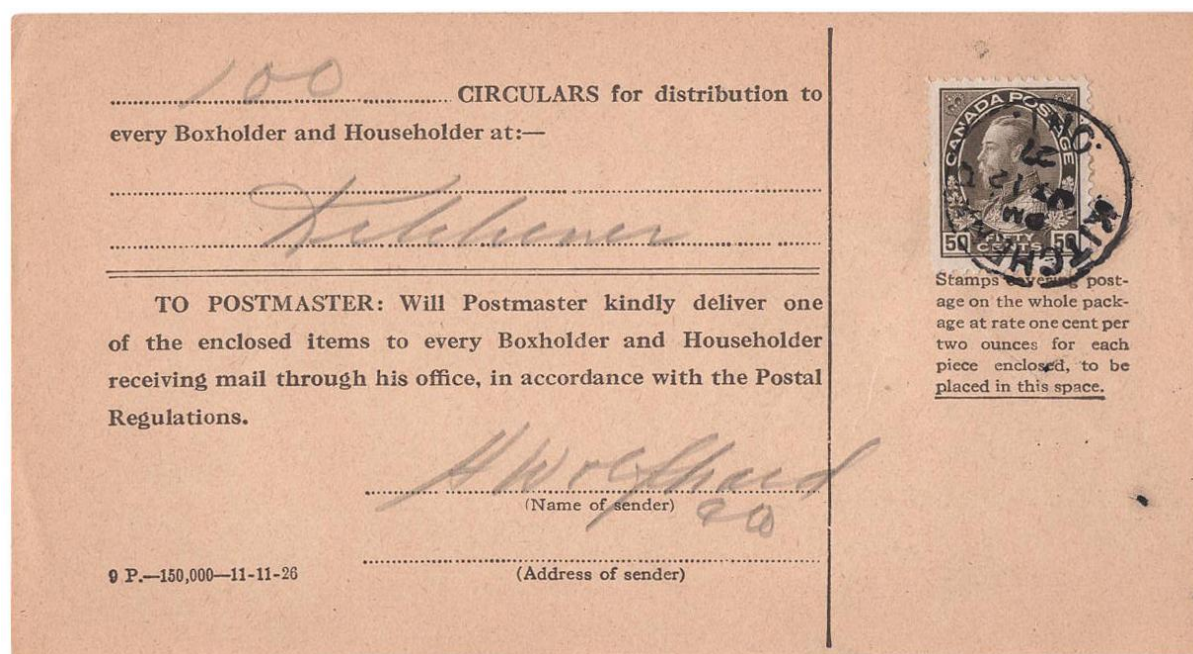 100 CIRCULARS for distribution to
every Boxholder and Householder at:—
Kitchener
TO POSTMASTER: Will Postmaster kindly deliver one
of the enclosed items to every Boxholder and Householder
receiving mail through his office, in accordance with the Postal
Regulations.
H Wolfhard
(Name of sender)
(Address of sender)
9 P.—150,000—11-11-26
CANADA POSTAGE
50 FIFTY CENTS 50
KITCHENER
ONT.
PM
12
27
Stamps covering post-
age on the whole pack-
age at rate one cent per
two ounces for each
piece enclosed, to be
placed in this space.